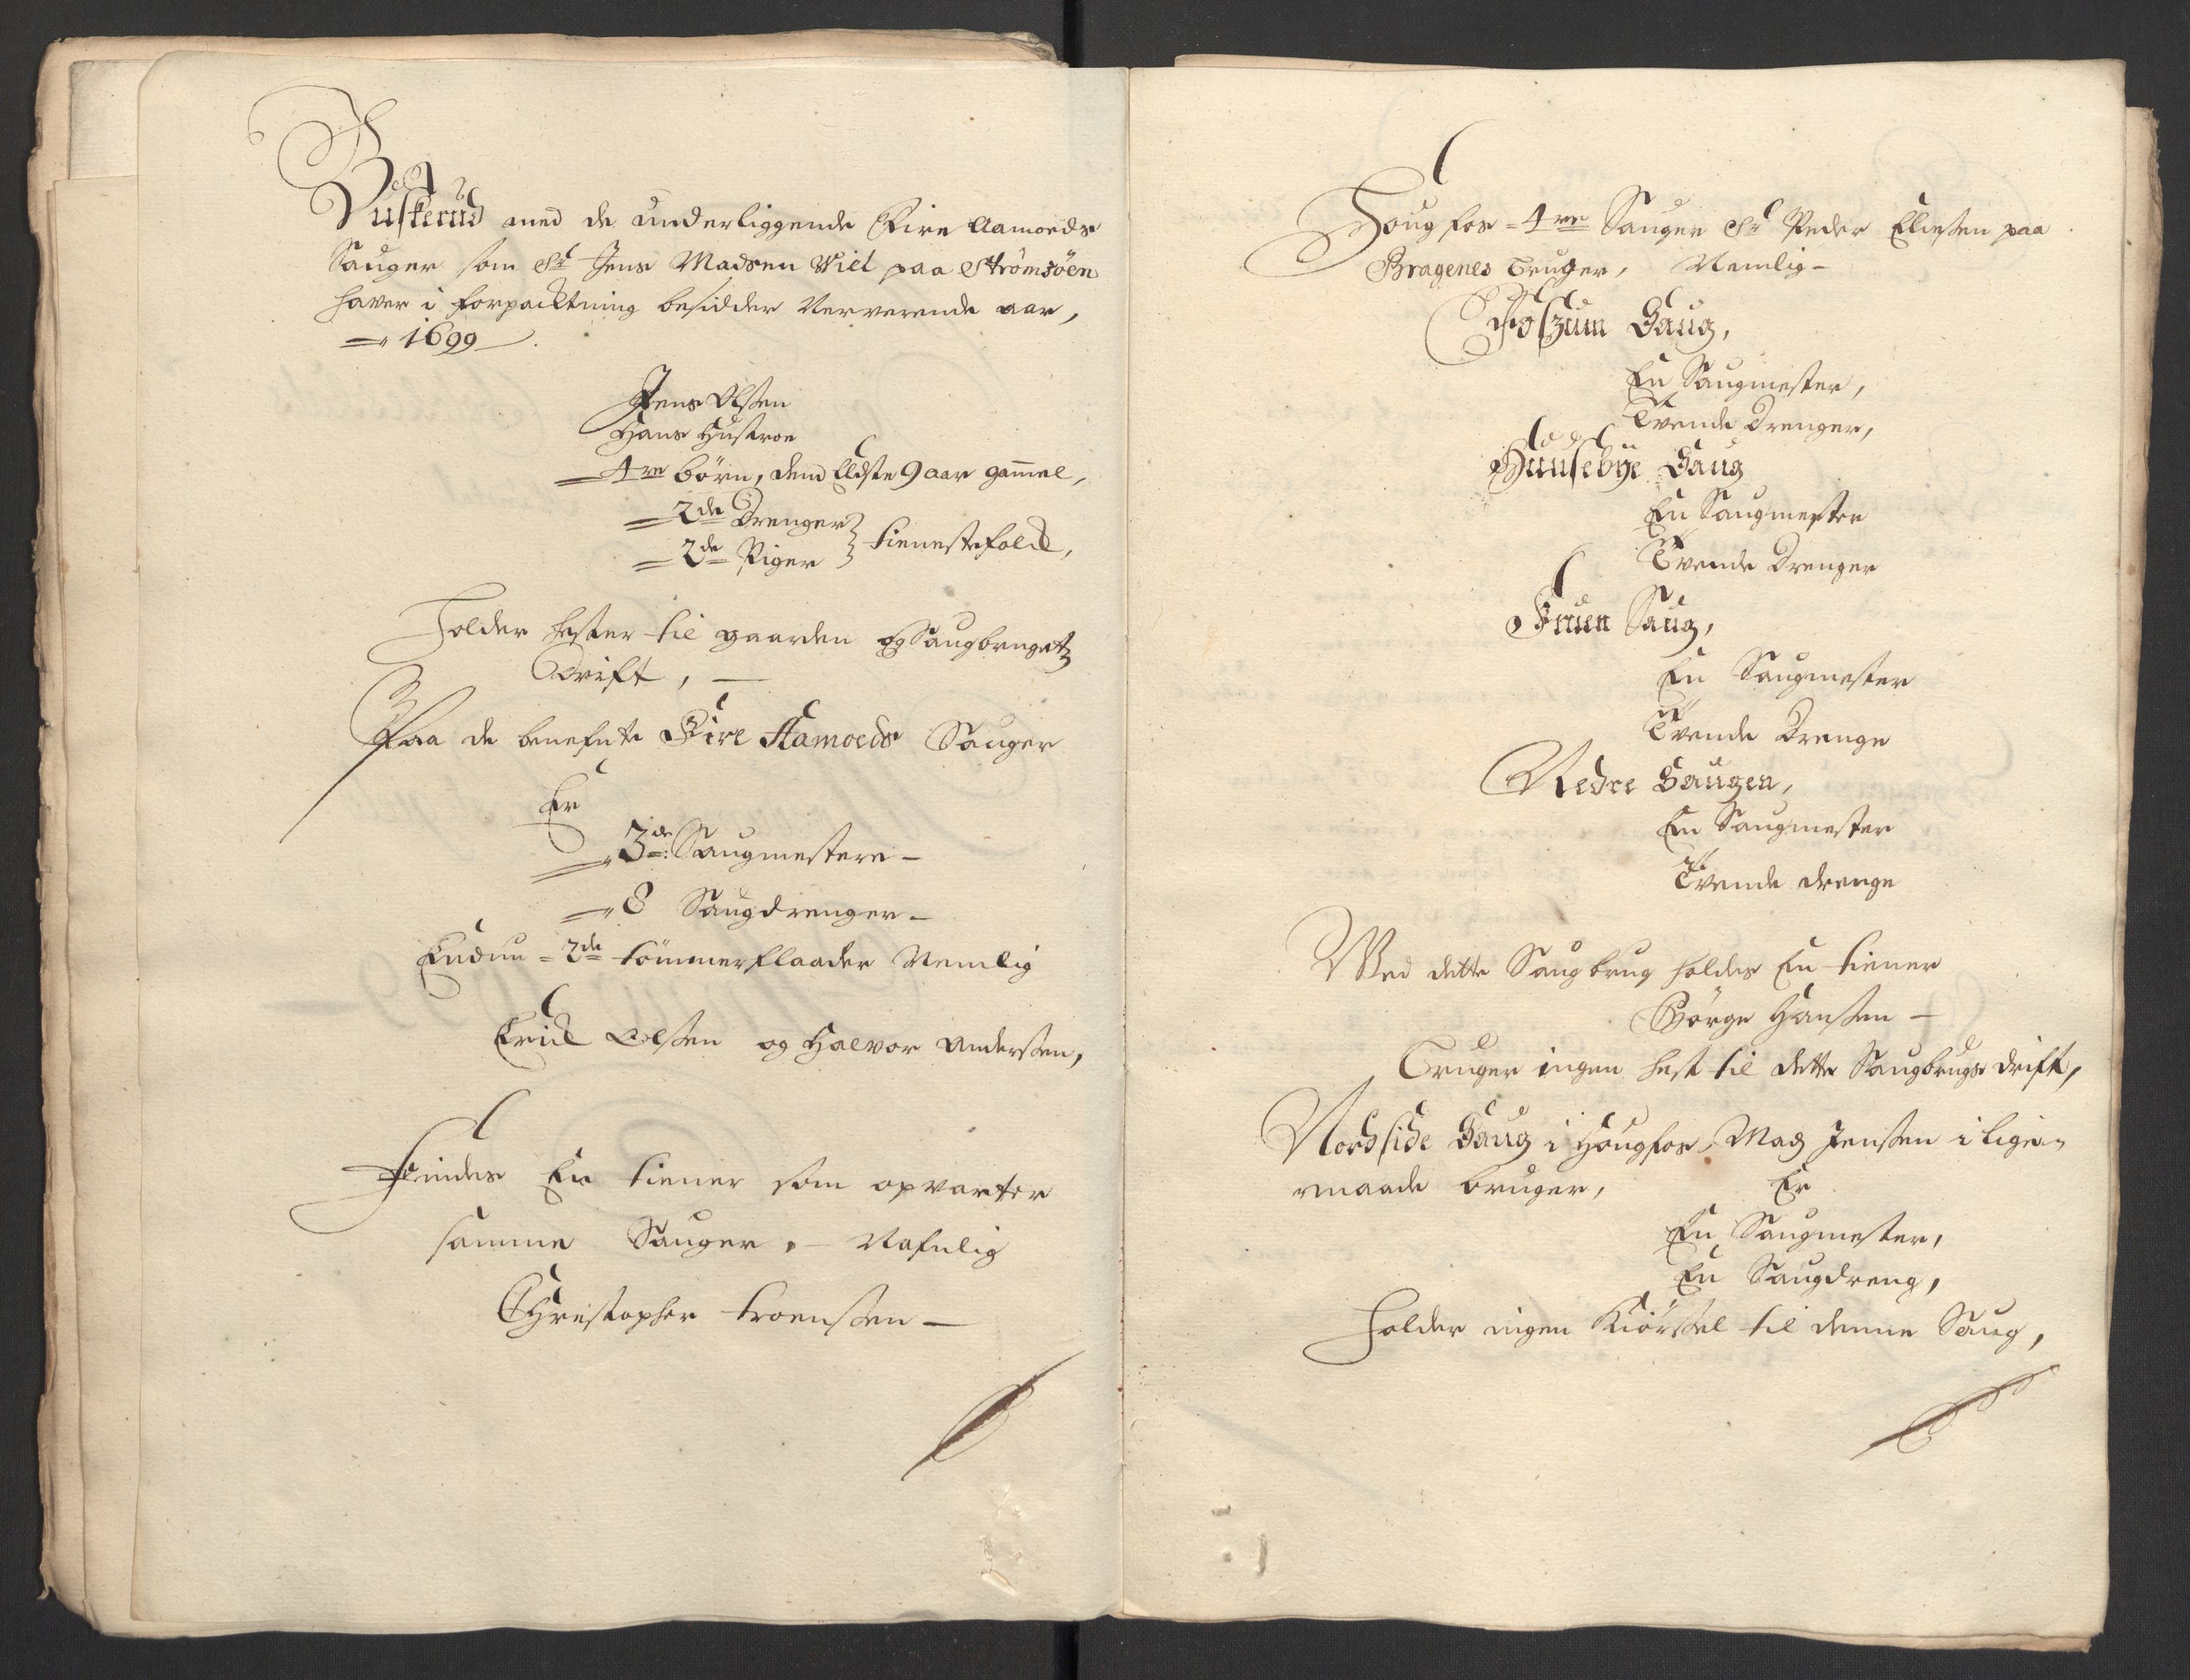 Buskerud med de underliggende Fire Aamoeds
Sauger som Sr Jens Madsen Wiel paa Strömsöen
hafver i forpacktning besidder Nerverende aar,
1699.
Jens Olsen
Hans Hustroe
4re börn, dend Eldste 9 aar gammel,
2de Drenger
2de Piger } tienestefolck,
Holder hester til gaarden og Saugbrugetz
Drift,
Paa de benefnte Fire Aamoeds Sauger
Er
3de Saugmestere
8 Saugdrenger
Endnu 2de tömmerflaader Nemlig
Erick Olsen og Halvor Andersen,
Findes En tiener som opvarter
samme Sauger, Nafnlig
Christopher Troensen
Hougfos 4re Sauger Sr Peder Eliesen paa
Bragenes bruger, Nemlig
Foszum Saug,
En Saugmester,
Tvende Drenger,
Huusebÿe Saug
En Saugmester
Tvende Drenger
Fruen Saug,
En Saugmester
Tvende Drenge
Nedre Saugen,
En Saugmester
Tvende drenge
Ved dette Saugbrug holdes En tiener
Börge Hansen
Bruger ingen hest til dette Saugbrugs drift,
Nordside Saug i Hougfos, Mads Jensen i lige
maade bruger, Er
En Saugmester,
En Saugdreng,
Holder ingen Kiörsel til denne Saug,